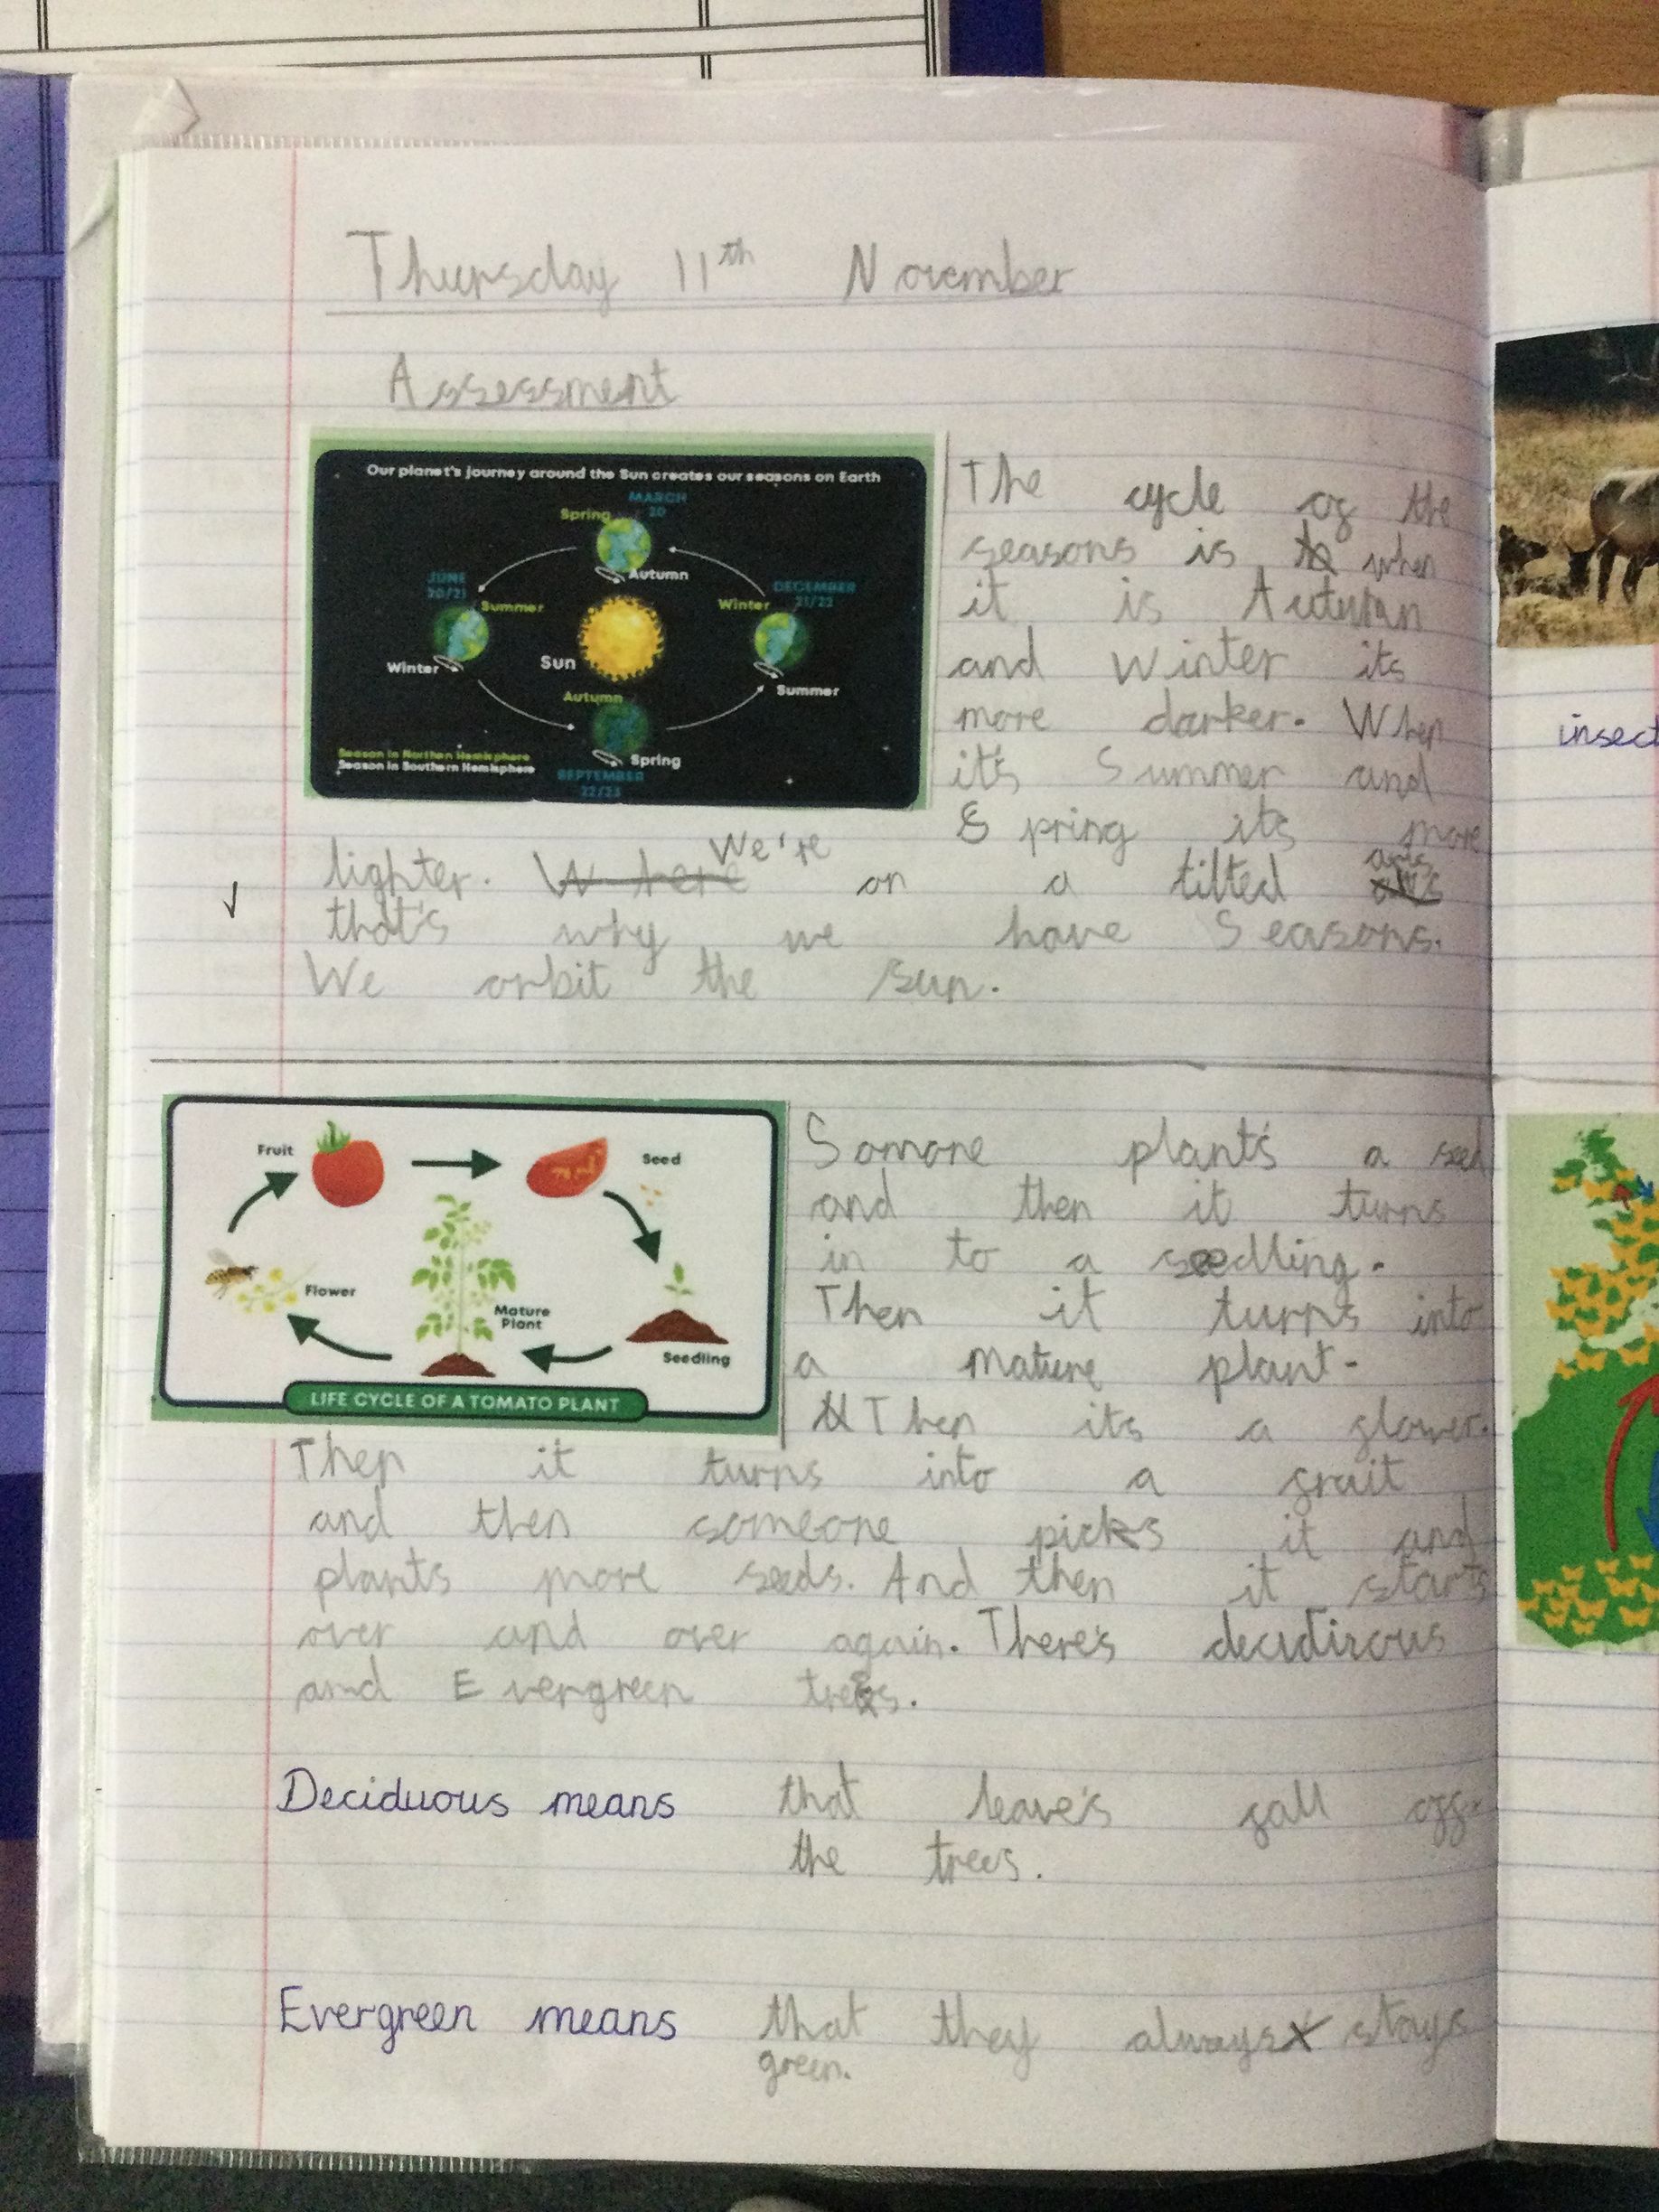 Thursday 11th November
Assessment
Our planet's journey around the Sun creates our seasons on Earth
MARCH
20
Spring
Autumn
JUNE
20/21
Summer
Winter
DECEMBER
21/22
Winter
Summer
Sun
Autumn
Spring
SEPTEMBER
22/23
Season in Northen Hemisphere
Season in Southern Hemisphere
The cycle of the
seasons is when
it is Autumn
and Winter its
more darker. When
it's Summer and
Spring its more
lighter. Where We're on a tilted axis
that's why we have Seasons.
We orbit the sun.
Fruit
Seed
Flower
Mature
Plant
Seedling
LIFE CYCLE OF A TOMATO PLANT
Somone plant's a seed
and then it turns
in to a seedling.
Then it turns into
a mature plant.
Then its a flower.
Then it turns into a fruit
and then someone picks it and
plants more seeds. And then it starts
over and over again. There's
and Evergreen trees.
Deciduous means that leave's fall off
the trees.
Evergreen means that they always stays
green.
insect